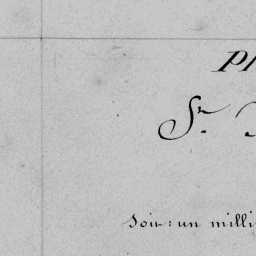 Pl
Sr.
Soit : un milli